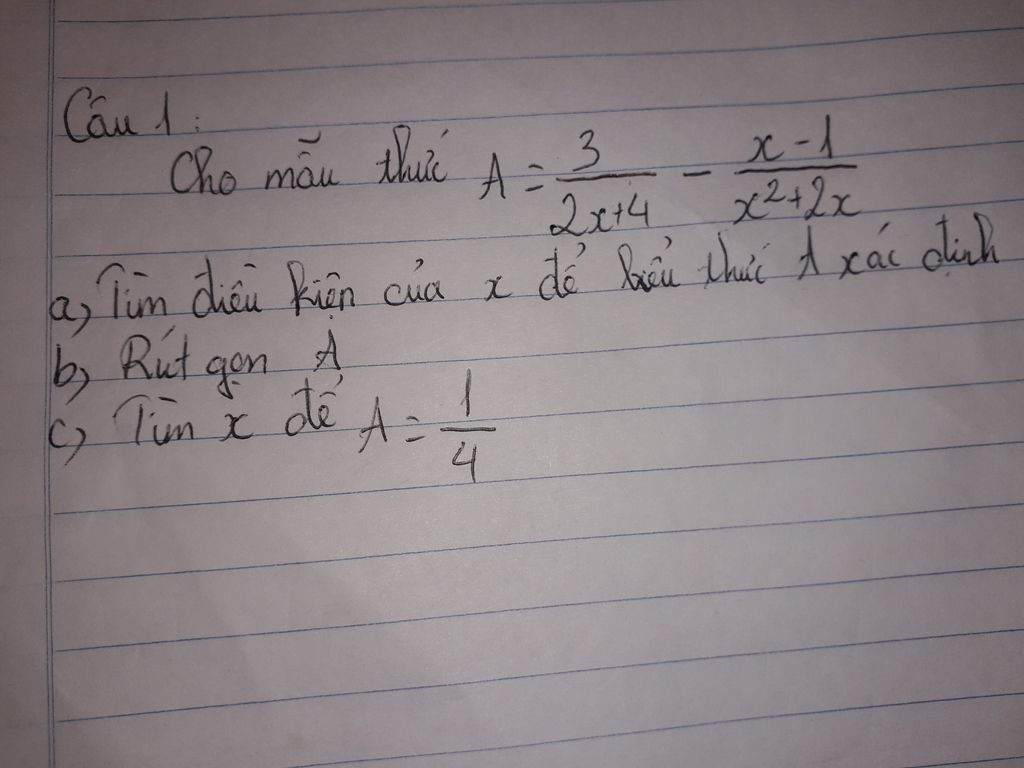 Câu 1:
Cho mẫu thức A = 3/(2x+4) - (x-1)/(x²+2x)
a, Tìm điều kiện của x để biểu thức A xác định
b, Rút gọn A
c, Tìm x để A = 1/4